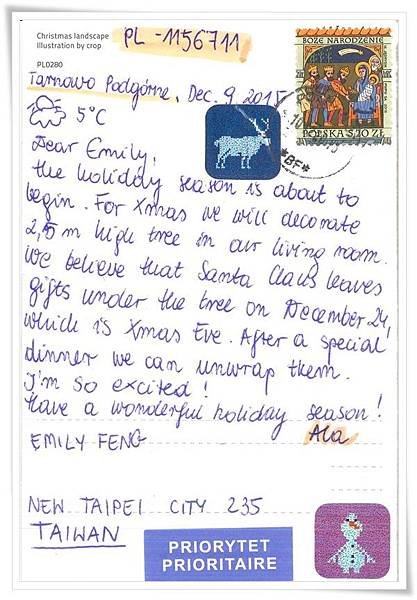 Christmas landscape
Illustration by crop
PL0280
PL-1156711
BOŻE NARODZENIE
POLSKA 5,10 ZŁ
Tarnowo Podgórne, Dec. 9. 2015
5°C
Dear Emily,
the holiday season is about to
begin. For Xmas we will decorate
2,5 m high tree in our living room.
We believe that Santa Claus leaves
gifts under the tree on December 24,
which is Xmas Eve. After a special
dinner we can unwrap them.
I'm so excited!
Have a wonderful holiday season!
Ala
EMILY FENG
NEW TAIPEI CITY 235
TAIWAN
PRIORYTET
PRIORITAIRE